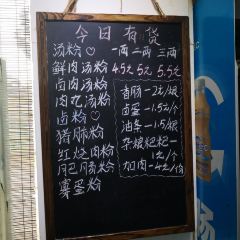 今日有货
汤粉♡ 一两 二两 三两
鲜肉汤粉 4.5元 5元 5.5元
卤肉汤粉
肉圪汤粉
卤粉♡
猪脚粉
红烧肉粉
肥肠粉
薯蛋粉
香肠-2元/根
卤蛋-1.5元/个
油条-1.5/根
杂粮粑粑-
1元/个
加肉-4元/份